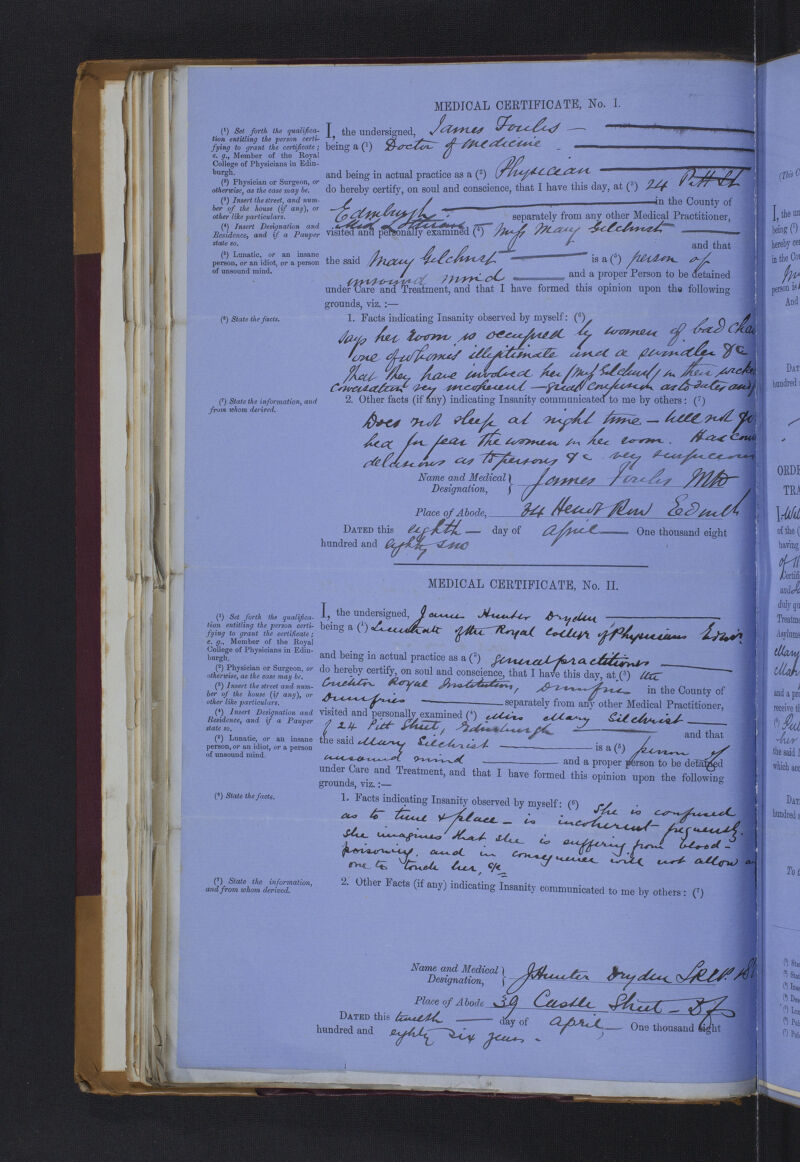 MEDICAL CERTIFICATE, No. I.
(1) Set forth the qualifica-
tion entitling the person certi-
fying to grant the certificate;
e. g., Member of the Royal
College of Physicians in Edin-
burgh.
(2) Physician or Surgeon, or
otherwise, as the case may be.
(3) Insert the street, and num-
ber of the house (if any), or
other like particulars.
(4) Insert Designation and
Residence, and if a Pauper
state so.
(5) Lunatic, or an insane
person, or an idiot, or a person
of unsound mind.
I, the undersigned, James Foulis —
being a (1) Doctor of Medicine
and being in actual practice as a (2) Physician
do hereby certify, on soul and conscience, that I have this day, at (3) 24 Pitt St
Edinburgh in the County of
separately from any other Medical Practitioner,
visited and personally examined (4) Miss Mary Gilchrist
and that
the said Mary Gilchrist is a (5) person of
unsound mind and a proper Person to be detained
under Care and Treatment, and that I have formed this opinion upon the following
grounds, viz. :—
(6) State the facts.
1. Facts indicating Insanity observed by myself: (6)
Says her room is occupied by women of bad
one of whom is illegitimate and a swindler &c
that they have involved her (Miss Gilchrist) in their
conversation very incoherent — great confusion as to dates and
(7) State the information, and
from whom derived.
2. Other facts (if any) indicating Insanity communicated to me by others: (7)
Does not sleep at night time — will not go
bed for fear the women in her room. Has
delusions as to persons &c very
Name and Medical
Designation, James Foulis MD
Place of Abode, 34 Heriot Row Edinb
DATED this eighth — day of April One thousand eight
hundred and eighty six
MEDICAL CERTIFICATE, No. II.
(1) Set forth the qualifica-
tion entitling the person certi-
fying to grant the certificate;
e. g., Member of the Royal
College of Physicians in Edin-
burgh.
(2) Physician or Surgeon, or
otherwise, as the case may be.
(3) Insert the street and num-
ber of the house (if any), or
other like particulars.
(4) Insert Designation and
Residence, and if a Pauper
state so.
(5) Lunatic, or an insane
person, or an idiot, or a person
of unsound mind.
I, the undersigned, James Hunter Dryden
being a (1) Licentiate of the Royal College of Physicians Edinr.
and being in actual practice as a (2) general practitioner
do hereby certify, on soul and conscience, that I have this day, at (3) the
Crichton Royal Institution, Dumfries in the County of
Dumfries separately from any other Medical Practitioner,
visited and personally examined (4) Miss Mary Gilchrist
of 24 Pitt Street, Edinburgh and that
the said Mary Gilchrist is a (5) person of
unsound mind and a proper person to be detained
under Care and Treatment, and that I have formed this opinion upon the following
grounds, viz. :—
(6) State the facts.
1. Facts indicating Insanity observed by myself: (6) She is confused
as to time & place — is incoherent frequently.
She imagines that she is suffering from blood-
poisoning, and in consequence will not allow
one to touch her, &c
(7) State the information,
and from whom derived.
2. Other Facts (if any) indicating Insanity communicated to me by others: (7)
Name and Medical
Designation, J Hunter Dryden LRCP.
Place of Abode 39 Castle Street — Dfs
DATED this twelfth — day of April — One thousand eight
hundred and eighty six years -